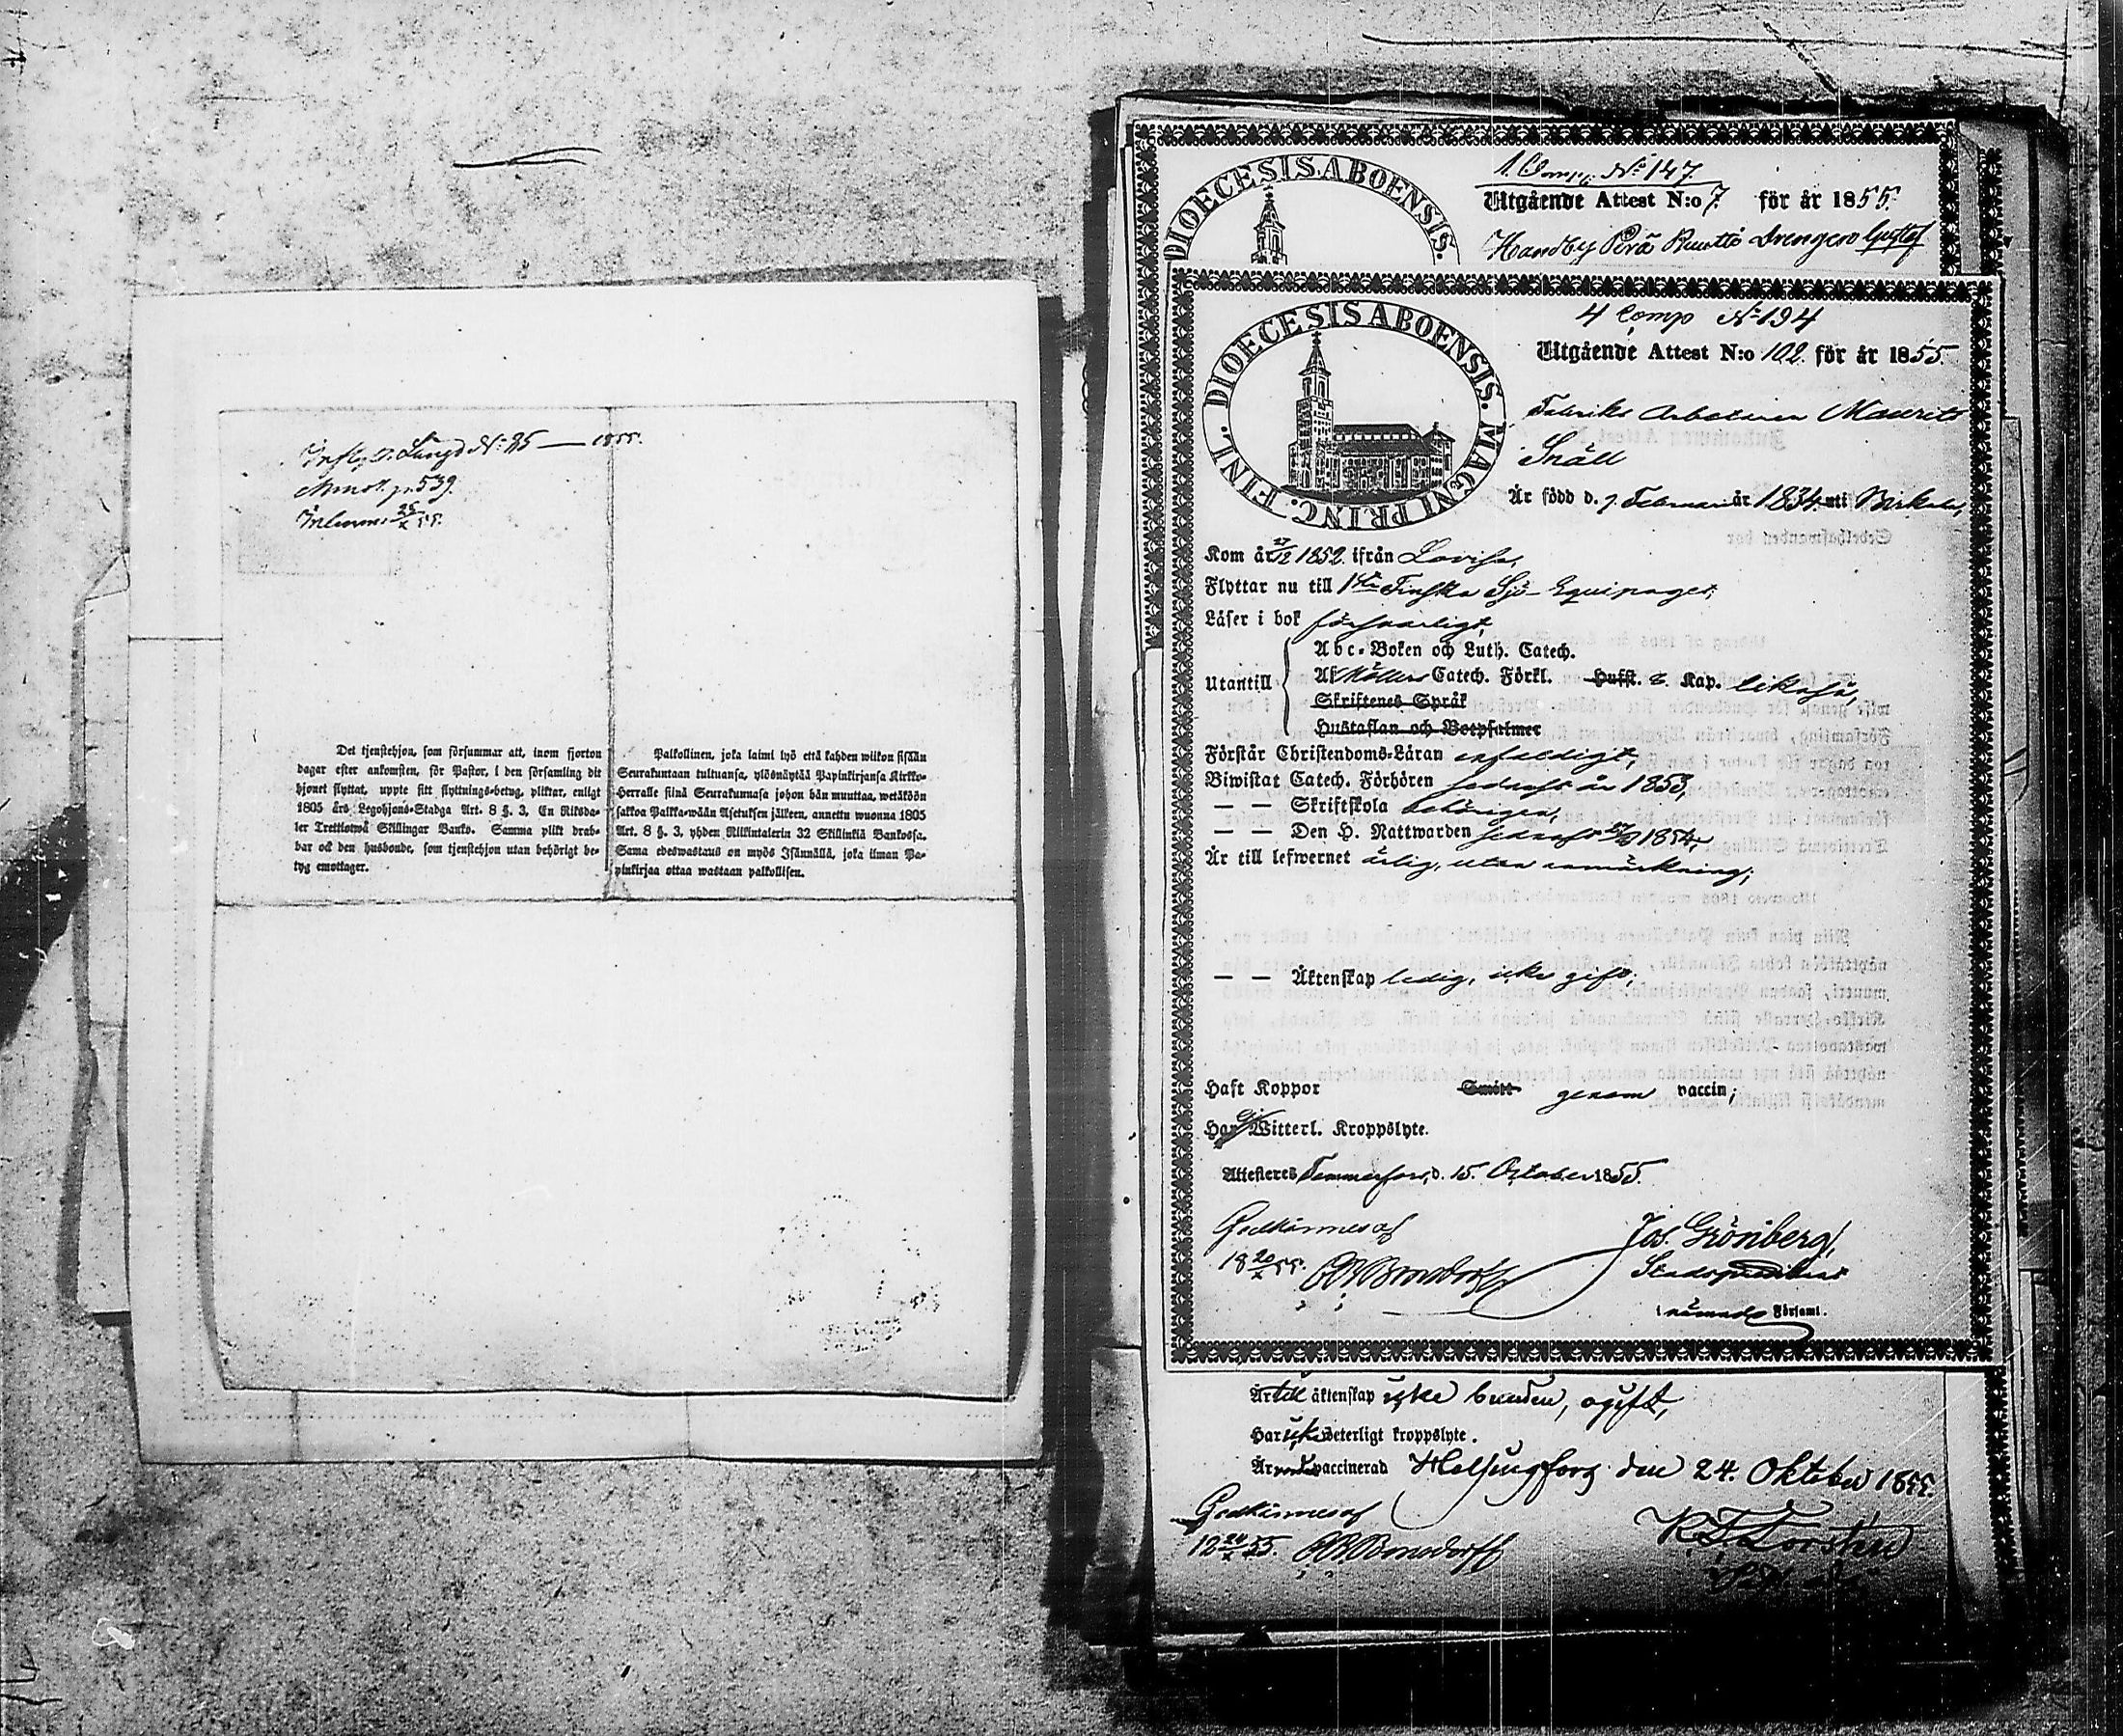 Infl. o. Längd N: 85 — 1855.
Annot. p. 539.
Inkom. 25/X 55.
Det tjenstehjon, som försummar att, inom fjorton
dagar efter ankomsten, för Pastor, i den församling dit
hjonet flyttat, uppte sitt flyttnings-betyg, pliktar, enligt
1805 års Legohjons-Stadga Art. 8 §. 3, En Riksda-
ler Trettiotwå Skillingar Banko. Samma plikt drab-
bar ock den husbonde, som tjenstehjon utan behörigt be-
tyg emottager.
Palkollinen, joka laimi lyö että kahden wiikon sisään
Seurakuntaan tultuansa, ylösnäytää Papinkirjansa Kirkko-
Herralle siinä Seurakunnasa johon hän muuttaa, wetäköön
sakkoa Palkka-wään Asetuksen jälkeen, annettu wuonna 1805
Art. 8 §. 3, yhden Riikintalerin 32 Skillinkiä Bankossa.
Sama edeswastaus on myös Isännällä, joka ilman Pa-
pinkirjaa ottaa wastaan palkollisen.
1. Comp. No 147.
DIOECESIS ABOENSIS.
Utgående Attest N:o 7. för år 1855.
Handby Perä Ruotti Drengen Gustaf
4 Comp No 194
DIOECESIS ABOENSIS. MAGNI PRINC. FINL.
Utgående Attest N:o 102. för år 1855.
Fabriks Arbetaren Maurits
Snäll
Är född d. 7. Februari år 1834. uti Birkala,
Kom år 27/12 1852. ifrån Lovisa,
Flyttar nu till 1sta Finska Sjö-Equipaget;
Läser i bok försvarligt,
Utantill
Abc-Boken och Luth. Catech.
Af Möllers Catech. Förkl. Hufst. 2. Kap. likaså,
Skriftenes Språk
Hustaflan och Botpsalmer
Förstår Christendoms-Läran enfaldigt,
Biwistat Catech. Förhören sednast år 1853,
— — Skriftskola behörigen,
— — Den H. Nattwarden sednast 1854,
Är till lefwernet ärlig, utan anmärkning;
— — Äktenskap ledig, icke gift;
Haft Koppor Smitt genom vaccin;
Har ej Witterl. Kroppslyte.
Attesteres Tammerfors, d. 15. October 1855.
Godkännes af
18 20/X 55.
Jos. Grönberg,
Stadspredikant
i nämnde Församl.
Är till äktenskap icke bunden, ogift,
Har icke Veterligt kroppslyte.
Är vaccinerad Helsingfors den 24. Oktober 1855.
Godkännes af